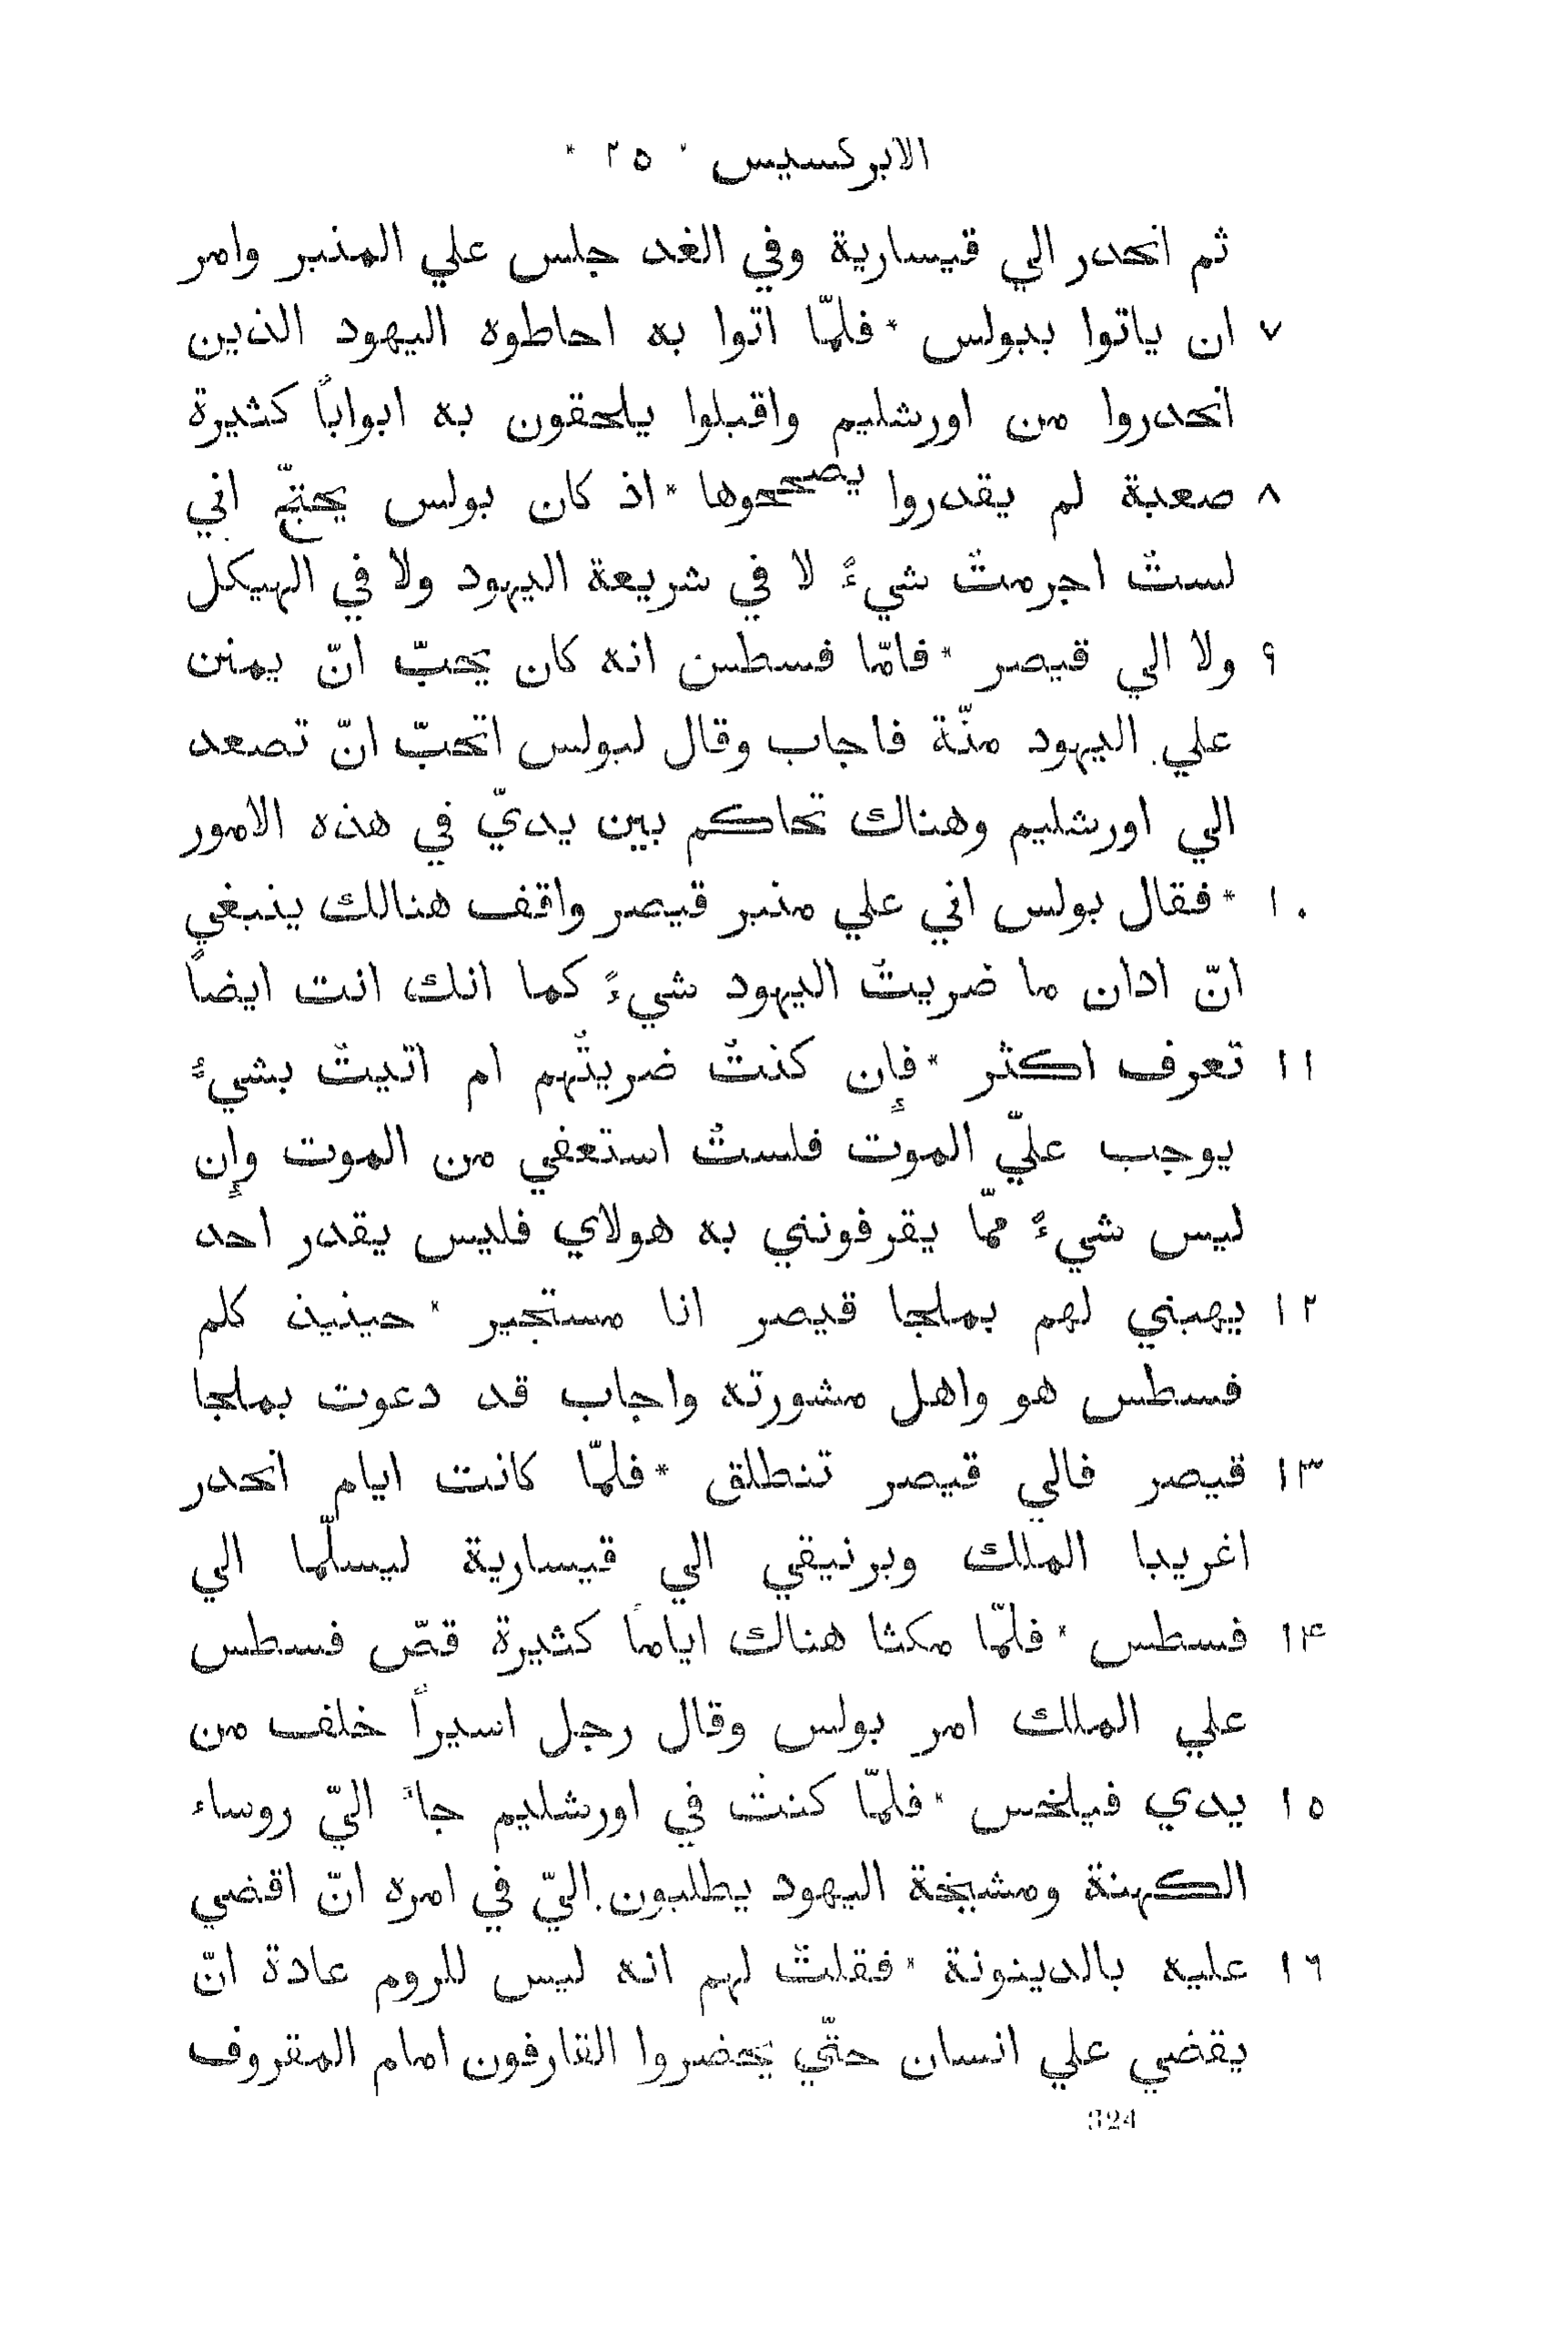 الابركسيس * ٢٥ *
ثم انحدر الي قيسارية وفي الغد جلس علي المنبر وامر
٧ ان ياتوا ببولس * فلمّا اتوا به احاطوه اليهود الذين
انحدروا من اورشليم واقبلوا يلحقون به ابواباً كثيرة
٨ صعبة لم يقدروا يصححوها * اذ كان بولس يحتجّ اني
لستُ اجرمتُ شيءً لا في شريعة اليهود ولا في الهيكل
٩ ولا الي قيصر * فامّا فسطس انه كان يحبّ انّ يمنن
علي اليهود منّة فاجاب وقال لبولس اتحبّ انّ تصعد
الي اورشليم وهناك تحاكم بين يديّ في هذه الامور
١٠ * فقال بولس اني علي منبر قيصر واقف هنالك ينبغي
انّ ادان ما ضريتُ اليهود شيءً كما انك انت ايضاً
١١ تعرف اكثر * فإن كنتُ ضريتُهم ام اتيتُ بشيءً
يوجب عليّ الموت فلستُ استعفي من الموت وإن
ليس شيءً ممّا يقرفونني به هولاي فليس يقدر احد
١٢ يهبني لهم بملجا قيصر انا مستجير * حينيذ كلم
فسطس هو واهل مشورته واجاب قد دعوت بملجا
١٣ قيصر فالي قيصر تنطلق * فلمّا كانت ايام انحدر
اغريبا الملك وبرنيقي الي قيسارية ليسلّما الي
١٤ فسطس * فلمّا مكثا هناك اياماً كثيرة قصّ فسطس
علي الملك امر بولس وقال رجل اسيراً خلف من
١٥ يدي فيلخس * فلمّا كنتُ في اورشليم جاءً اليّ روساء
الكهنة ومشيخة اليهود يطلبون اليّ في امره انّ اقضي
١٦ عليه بالدينونة * فقلتُ لهم انه ليس للروم عادة انّ
يقضي علي انسان حتّي يحضروا القارفون امام المقروف
324